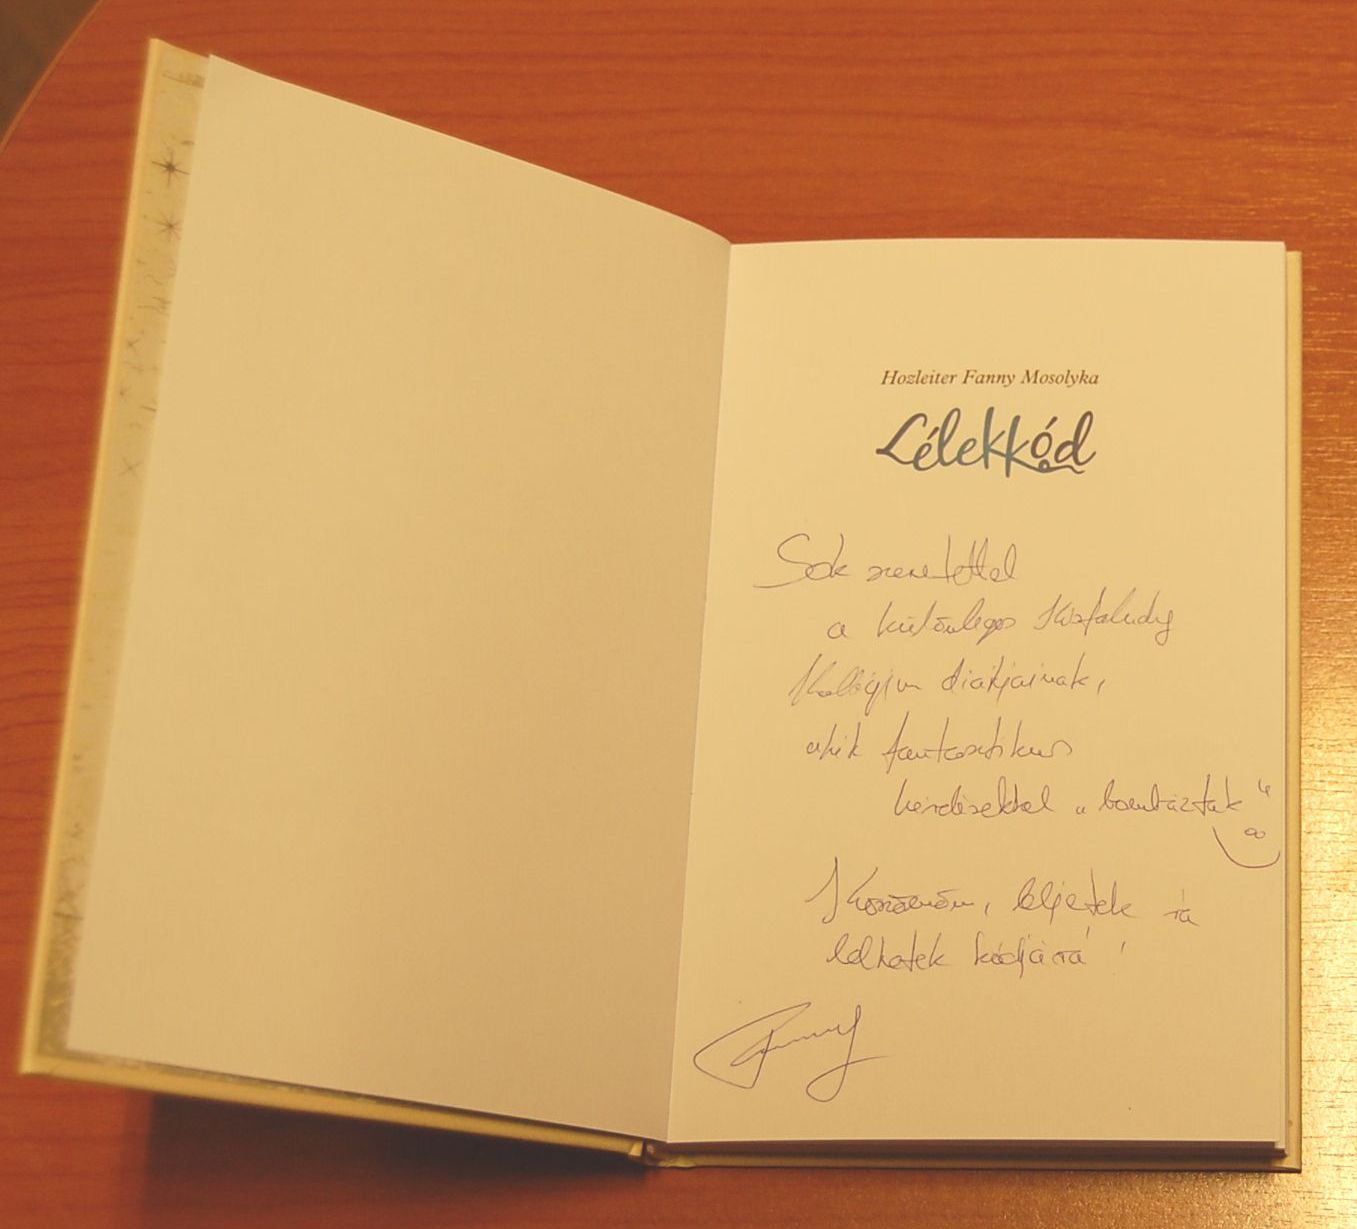 Hozleiter Fanny Mosolyka
Lélekkód
Sok szeretettel
a különleges Kisfaludy
Kollégium diákjainak,
akik fantasztikus
kérdésekkel „bombáztak"
Köszönöm, leljetek rá
lelketek kódjára!
Fanny